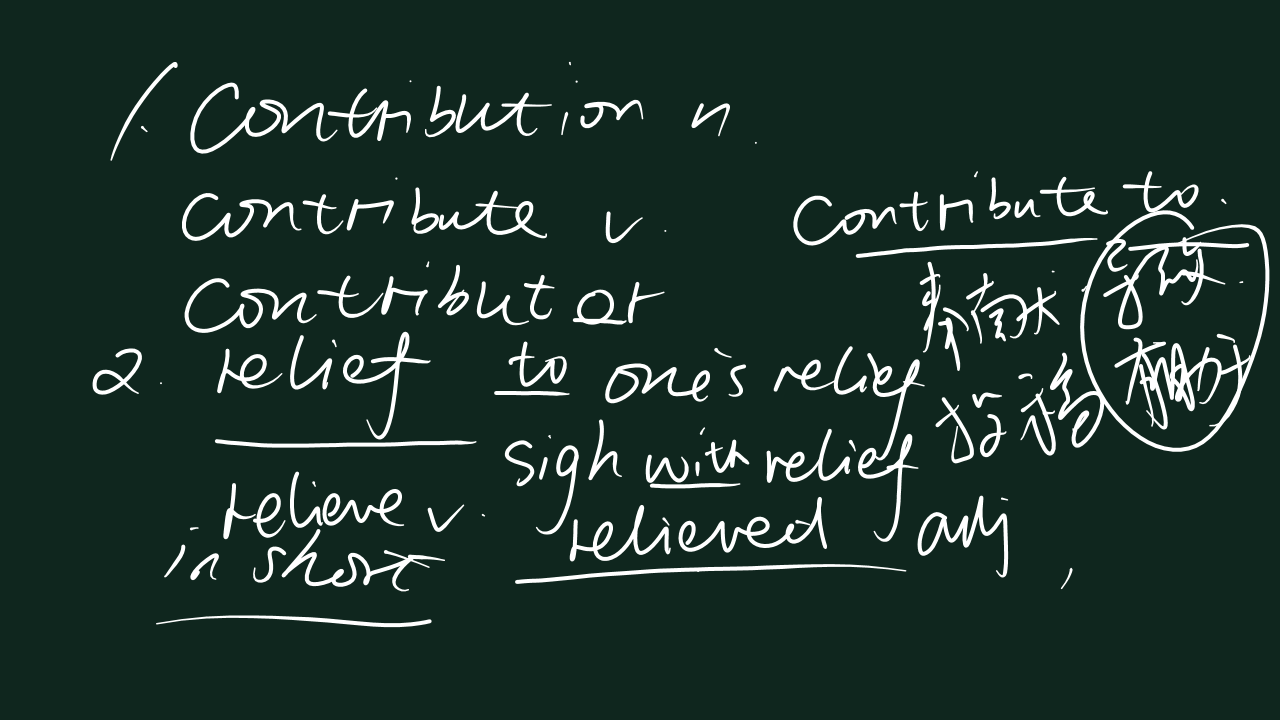 1. Contribution n.
contribute v. Contribute to.
contributor 奉献 导致
2. relief to one's relief 有助于
sigh with relief 投稿
relieve v. relieved adj,
in short